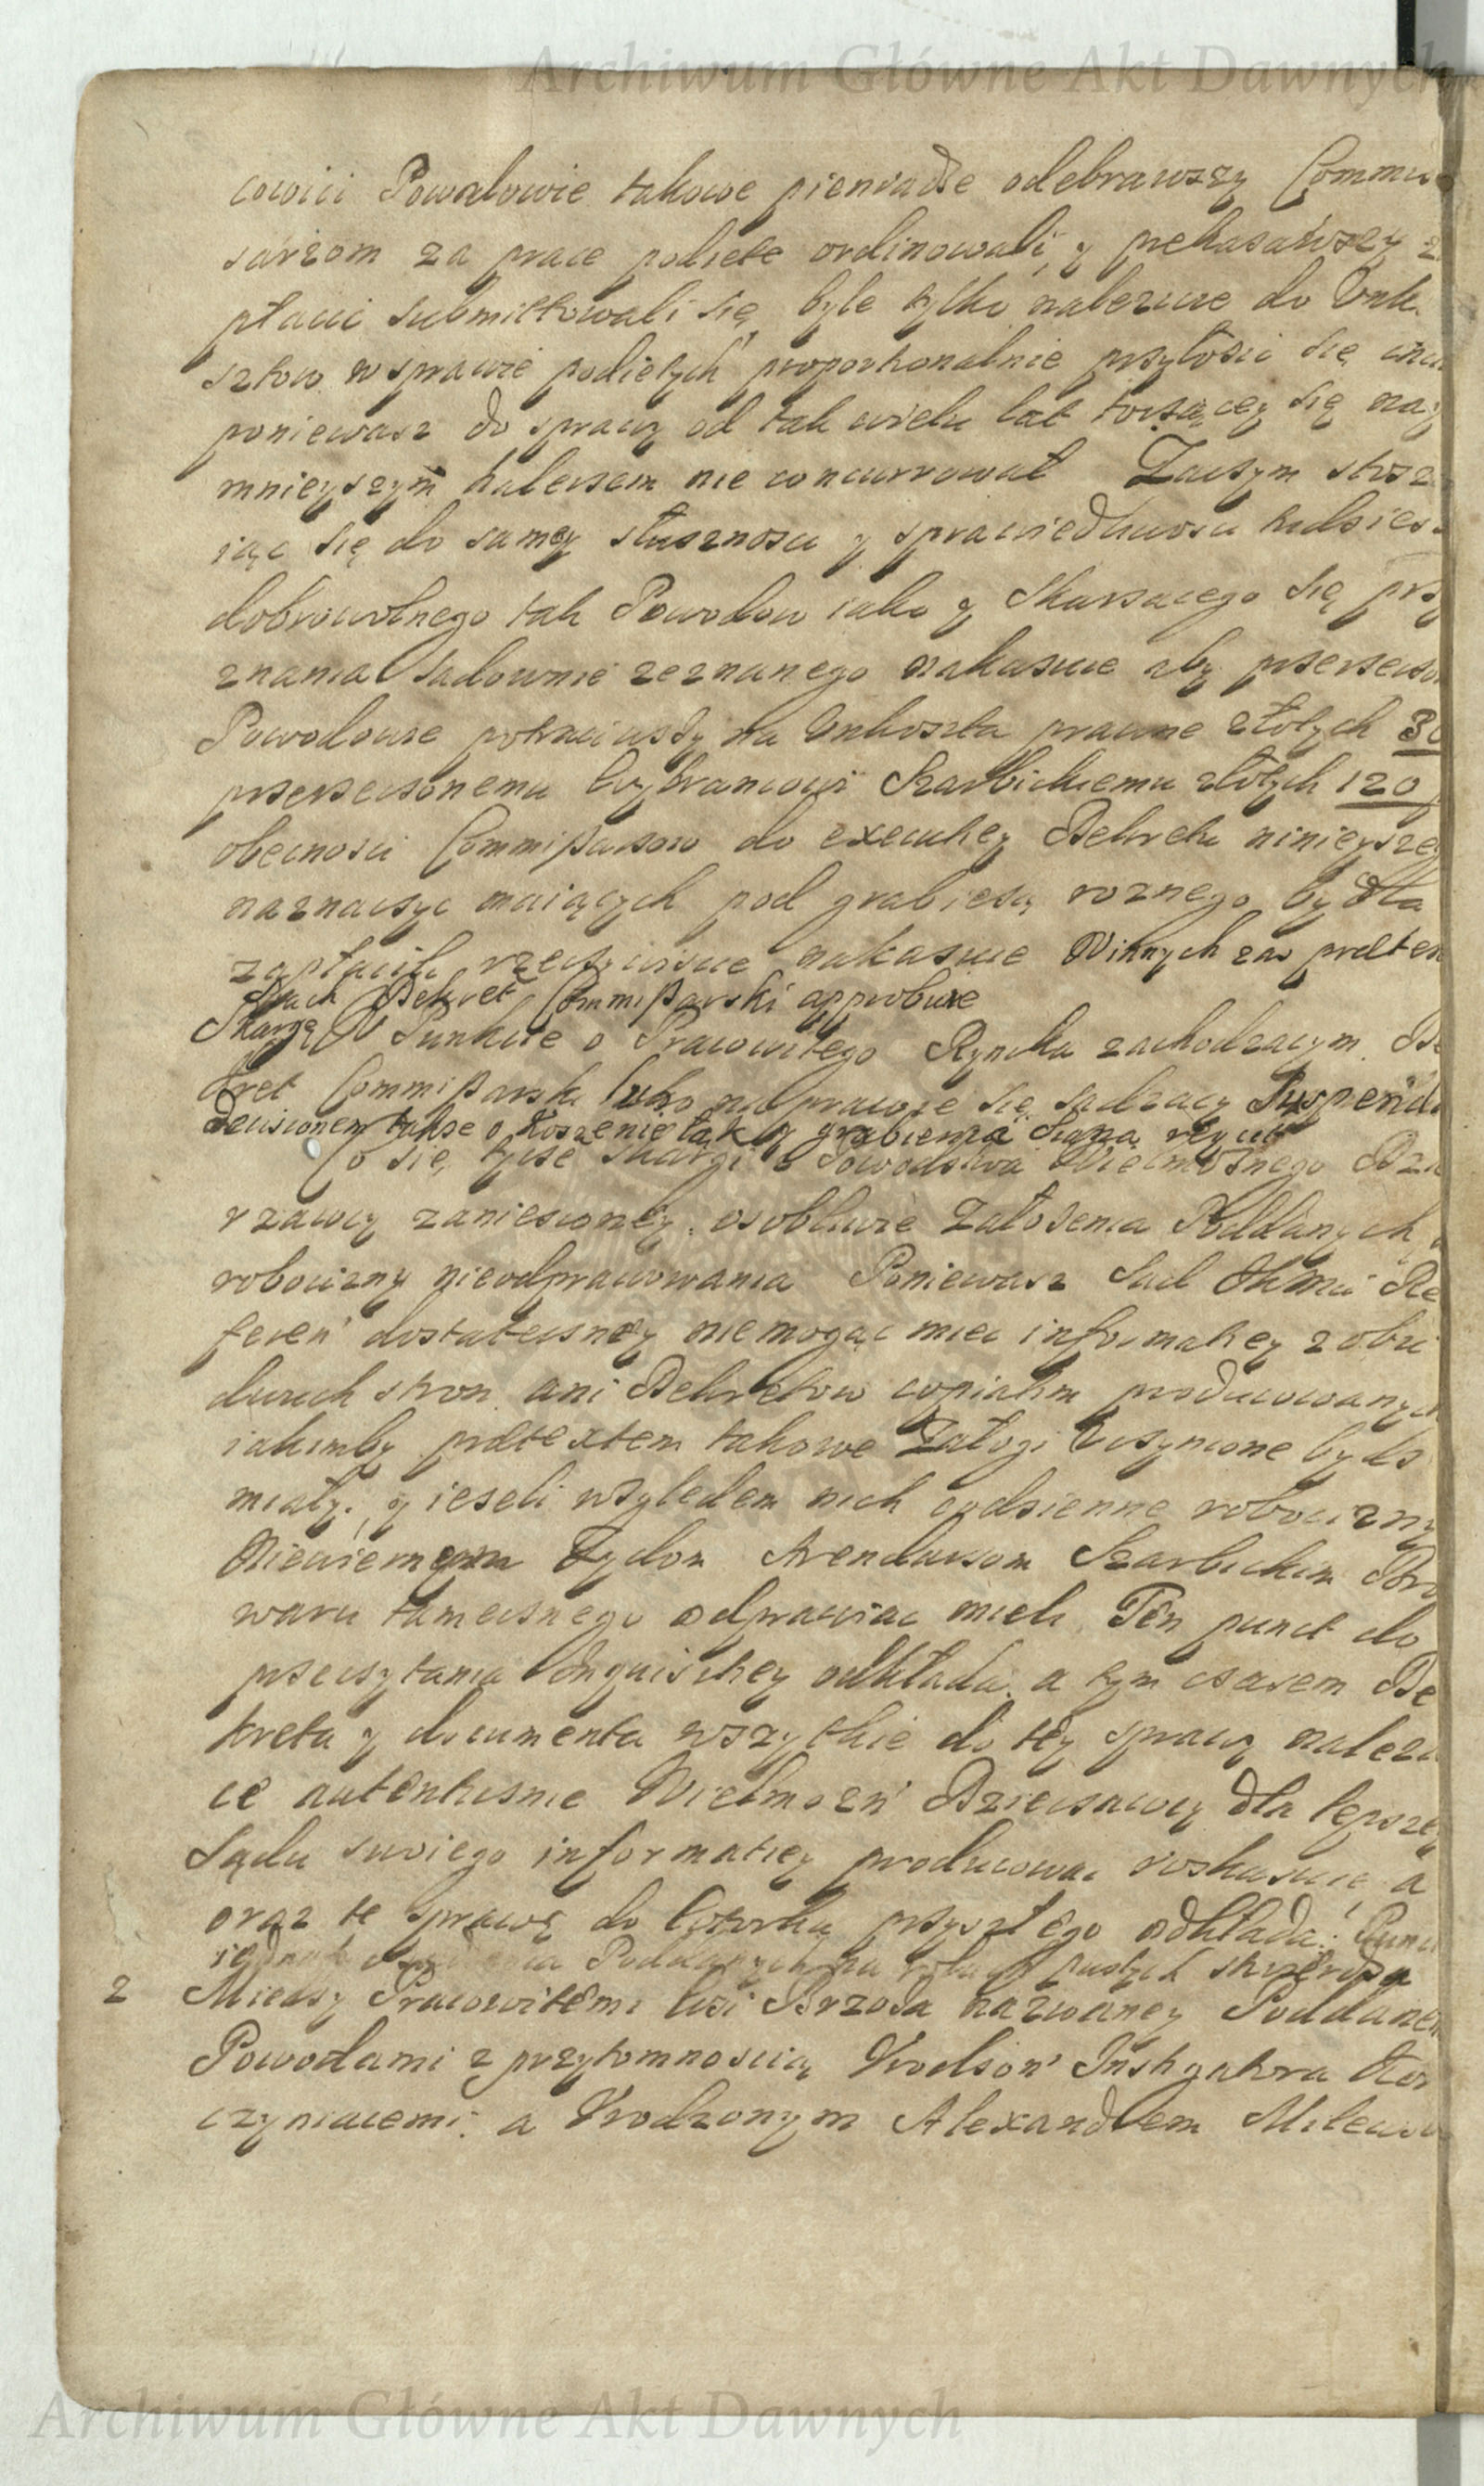 Archiwum Główne Akt Dawnych
cowici Powodowie takowe pieniadze odebrawszy Commis
sarzom za prace podiete ordinowali, y przekazawszy
płacic submittowali się, byle tylko nalezycie do Unk
sztow w sprawie podiętych proporhonalnie przyłosic się
poniewasz do sprawy od tak wielu lat tosącey się nay
mnieyszym halersem nie concurrował Zaczym stosu
iąc się do samey słusznosci y sprawiedliwosci tudzies
dobrowolnego tak Powodow iako y Skarsacego się przy
znania sadownie zeznanego nakasuie aby przerzeczo
Powodowie potraciwszy na Unkoszta prawne złotych 30
przerzeczonemu Wybrancowi Szarbickiemu złotych 120
obecnosci Commissarsow do executiey Dekretu ninieysze
naznaczyc maiących pod grabiesą roznego bydła
zapłacili rzeczywiscie nakasuie W innych zas prætens
siach Dekret Commissarski approbuie
Skargę W Punkcie o Pracowitego Rynska zachodzacym De
kret Commissarsk na prawie się sadzacy Suspendu
Decisionem takse o Koszenie łąk y grabienia Siana
Co się tycse skargi o Powodstwa Wielmoznego Dzie
rzawcy zaniesioney osobliwie Załosenia Poddanych
robocizny nieodprawowania Poniewasz Sad JKMci Re
feren dostateczney niemogąc miec informatiey z obu
dwuch stron ani Dekretow copiatim producowanych
iakimby prætextem takowe Załogi Uczynione bydz
miały, y iesseli wzgledem nich codzienne robocizny
Niewiernym Zydom Arendarsom Szarbickim Bro
waru tamecznego odprawiac mieli Ten punct do
przeczytania Inquisitiey odkłada, a tym czasem De
kreta y documenta wszytkie do tey sprawy nalezą
ce autenticsnie Wielmozn Dzierzawcy dla lepszey
Sądu swoiego informatiey producowac roskasuie a
oraz te sprawę do Wtorku przyszłego odkłada. Punct
iednak Poddanych na pustych
2 Miedzy Pracowitemi Wsi Brzoza nazwaney Poddane
Powodami z przytomnoscią Vrodzon Instygatora
czyniacemi a Vrodzonym Alexandrem Milew
Archiwum Główne Akt Dawnych